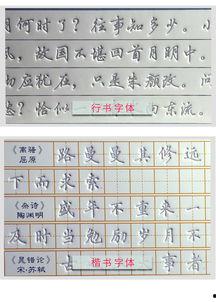 月何时了？往事知多少。小
风，故国不堪回首月明中。
切应犹在，只是朱颜改。问
愁？恰似 向东流。
行书字体
《离骚》
屈原
路曼曼其修远
下而求索
《杂诗》
陶渊明
盛年不重来一
及时当勉励岁月不
《晁错论》
宋·苏轼
古 事者
楷书字体